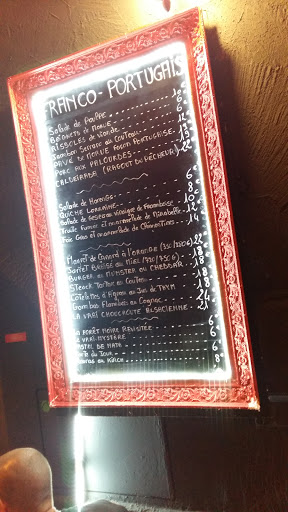 FRANCO-PORTUGAIS
Salade de Poulpe 10€
BEIGNETS de MORUE 6€
RISSOLES de Viande 6€
Jambon Serrano au Couteau 12€
PAVÉ de MORUE FAÇON PORTUGAISE
PORC AUX PALOURDES
CALDEIRADA (RAGOUT DU PÊCHEUR) 22€
Salade de Hareng 6€
QUICHE LORRAINE 8€
Salade de Gésiers vinaigre de Framboise 10€
Truite Fumée et marmelade de Mirabelle 12€
Foie Gras et marmelade de Clémentines 14€
Magret de Canard à l'ORANGE
Jarret Braisé au Miel
BURGER au MUNSTER ou CHEDDAR 18€
Steack Tartare au Couteau 18€
Côtelettes d'Agneau au Jus de THYM 18€
Gambas Flambées au Cognac
LA VRAI CHOUCROUTE ALSACIENNE 21€
LA FORÊT NOIRE REVISITÉE 6€
LA VARI-MYSTÈRE 6€
PASTEL DE NATA
du Jour
au Kirch 8€